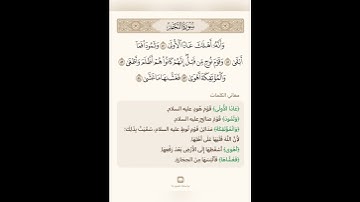 سُورَةُ النَّجْمِ
وَأَنَّهُ أَهْلَكَ عَادًا الْأُولَىٰ ۝ وَثَمُودَا فَمَا
أَبْقَىٰ ۝ وَقَوْمَ نُوحٍ مِّن قَبْلُ إِنَّهُمْ كَانُوا هُمْ أَظْلَمَ وَأَطْغَىٰ ۝
وَالْمُؤْتَفِكَةَ أَهْوَىٰ ۝ فَغَشَّاهَا مَا غَشَّىٰ ۝
معاني الكلمات
﴿عَادًا الْأُولَى﴾ قَوْمَ هُودٍ عليه السلام.
﴿وَثَمُودَ﴾ قَوْمَ صَالِحٍ عليه السلام.
﴿وَالْمُؤْتَفِكَةَ﴾ مَدَائِنَ قَوْمِ لُوطٍ عليه السلام، سُمِّيَتْ بِذَلِكَ؛
لِأَنَّ اللَّهَ قَلَبَهَا عَلَى أَهْلِهَا.
﴿أَهْوَى﴾ أَسْقَطَهَا إِلَى الْأَرْضِ بَعْدَ رَفْعِهَا.
﴿فَغَشَّاهَا﴾ فَأَلْبَسَهَا مِنَ الحِجَارَةِ.